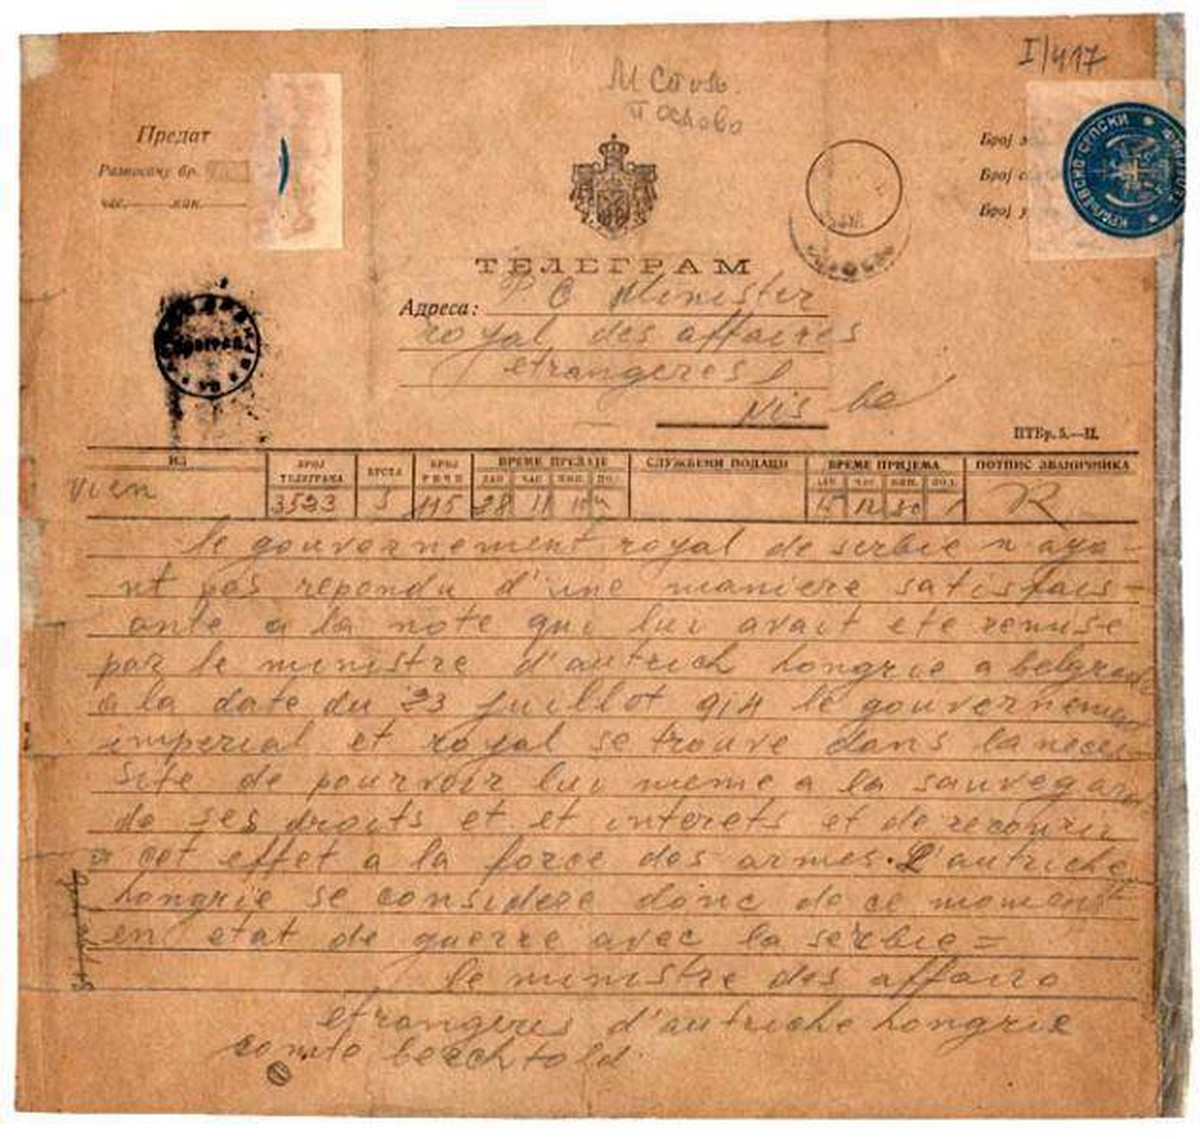 I/417
Предат
Разносачу бр.
час. мин.
Број
Број
Број
КРАЉЕВСКО СРПСКИ
ТЕЛЕГРАМ
Адреса: P C Minister
royal des affaires
etrangeres
Nis
ПТБр. 5.—II.
ИЗ БРОЈ ТЕЛЕГРАМА ВРСТА БРОЈ РЕЧИ ВРЕМЕ ПРЕДАЈЕ СЛУЖБЕНИ ПОДАЦИ ВРЕМЕ ПРИЈЕМА ПОТПИС ЗВАНИЧНИКА
ДАН ЧАС МИН. ПОД. ДАН ЧАС МИН. ПОД.
Vien 3523 5 115 28 11 12 R
le gouvernement royal de serbie n aya-
nt pas repondu d'une maniere satisfais-
ante a la note qui lui avait ete remise
par le ministre d'autrich hongrie a belgrade
a la date du 23 juillot 914 le gouvernement
imperial et royal se trouve dans la neces-
site de pourvoir lui meme a la sauvegar
de ses droits et et interets et de recourir
a cet effet a la force des armes. L'autriche
hongrie se considere donc de ce moment
en etat de guerre avec la serbie =
le ministre des affairo
etrangeres d'autriche hongrie
comte berchtold